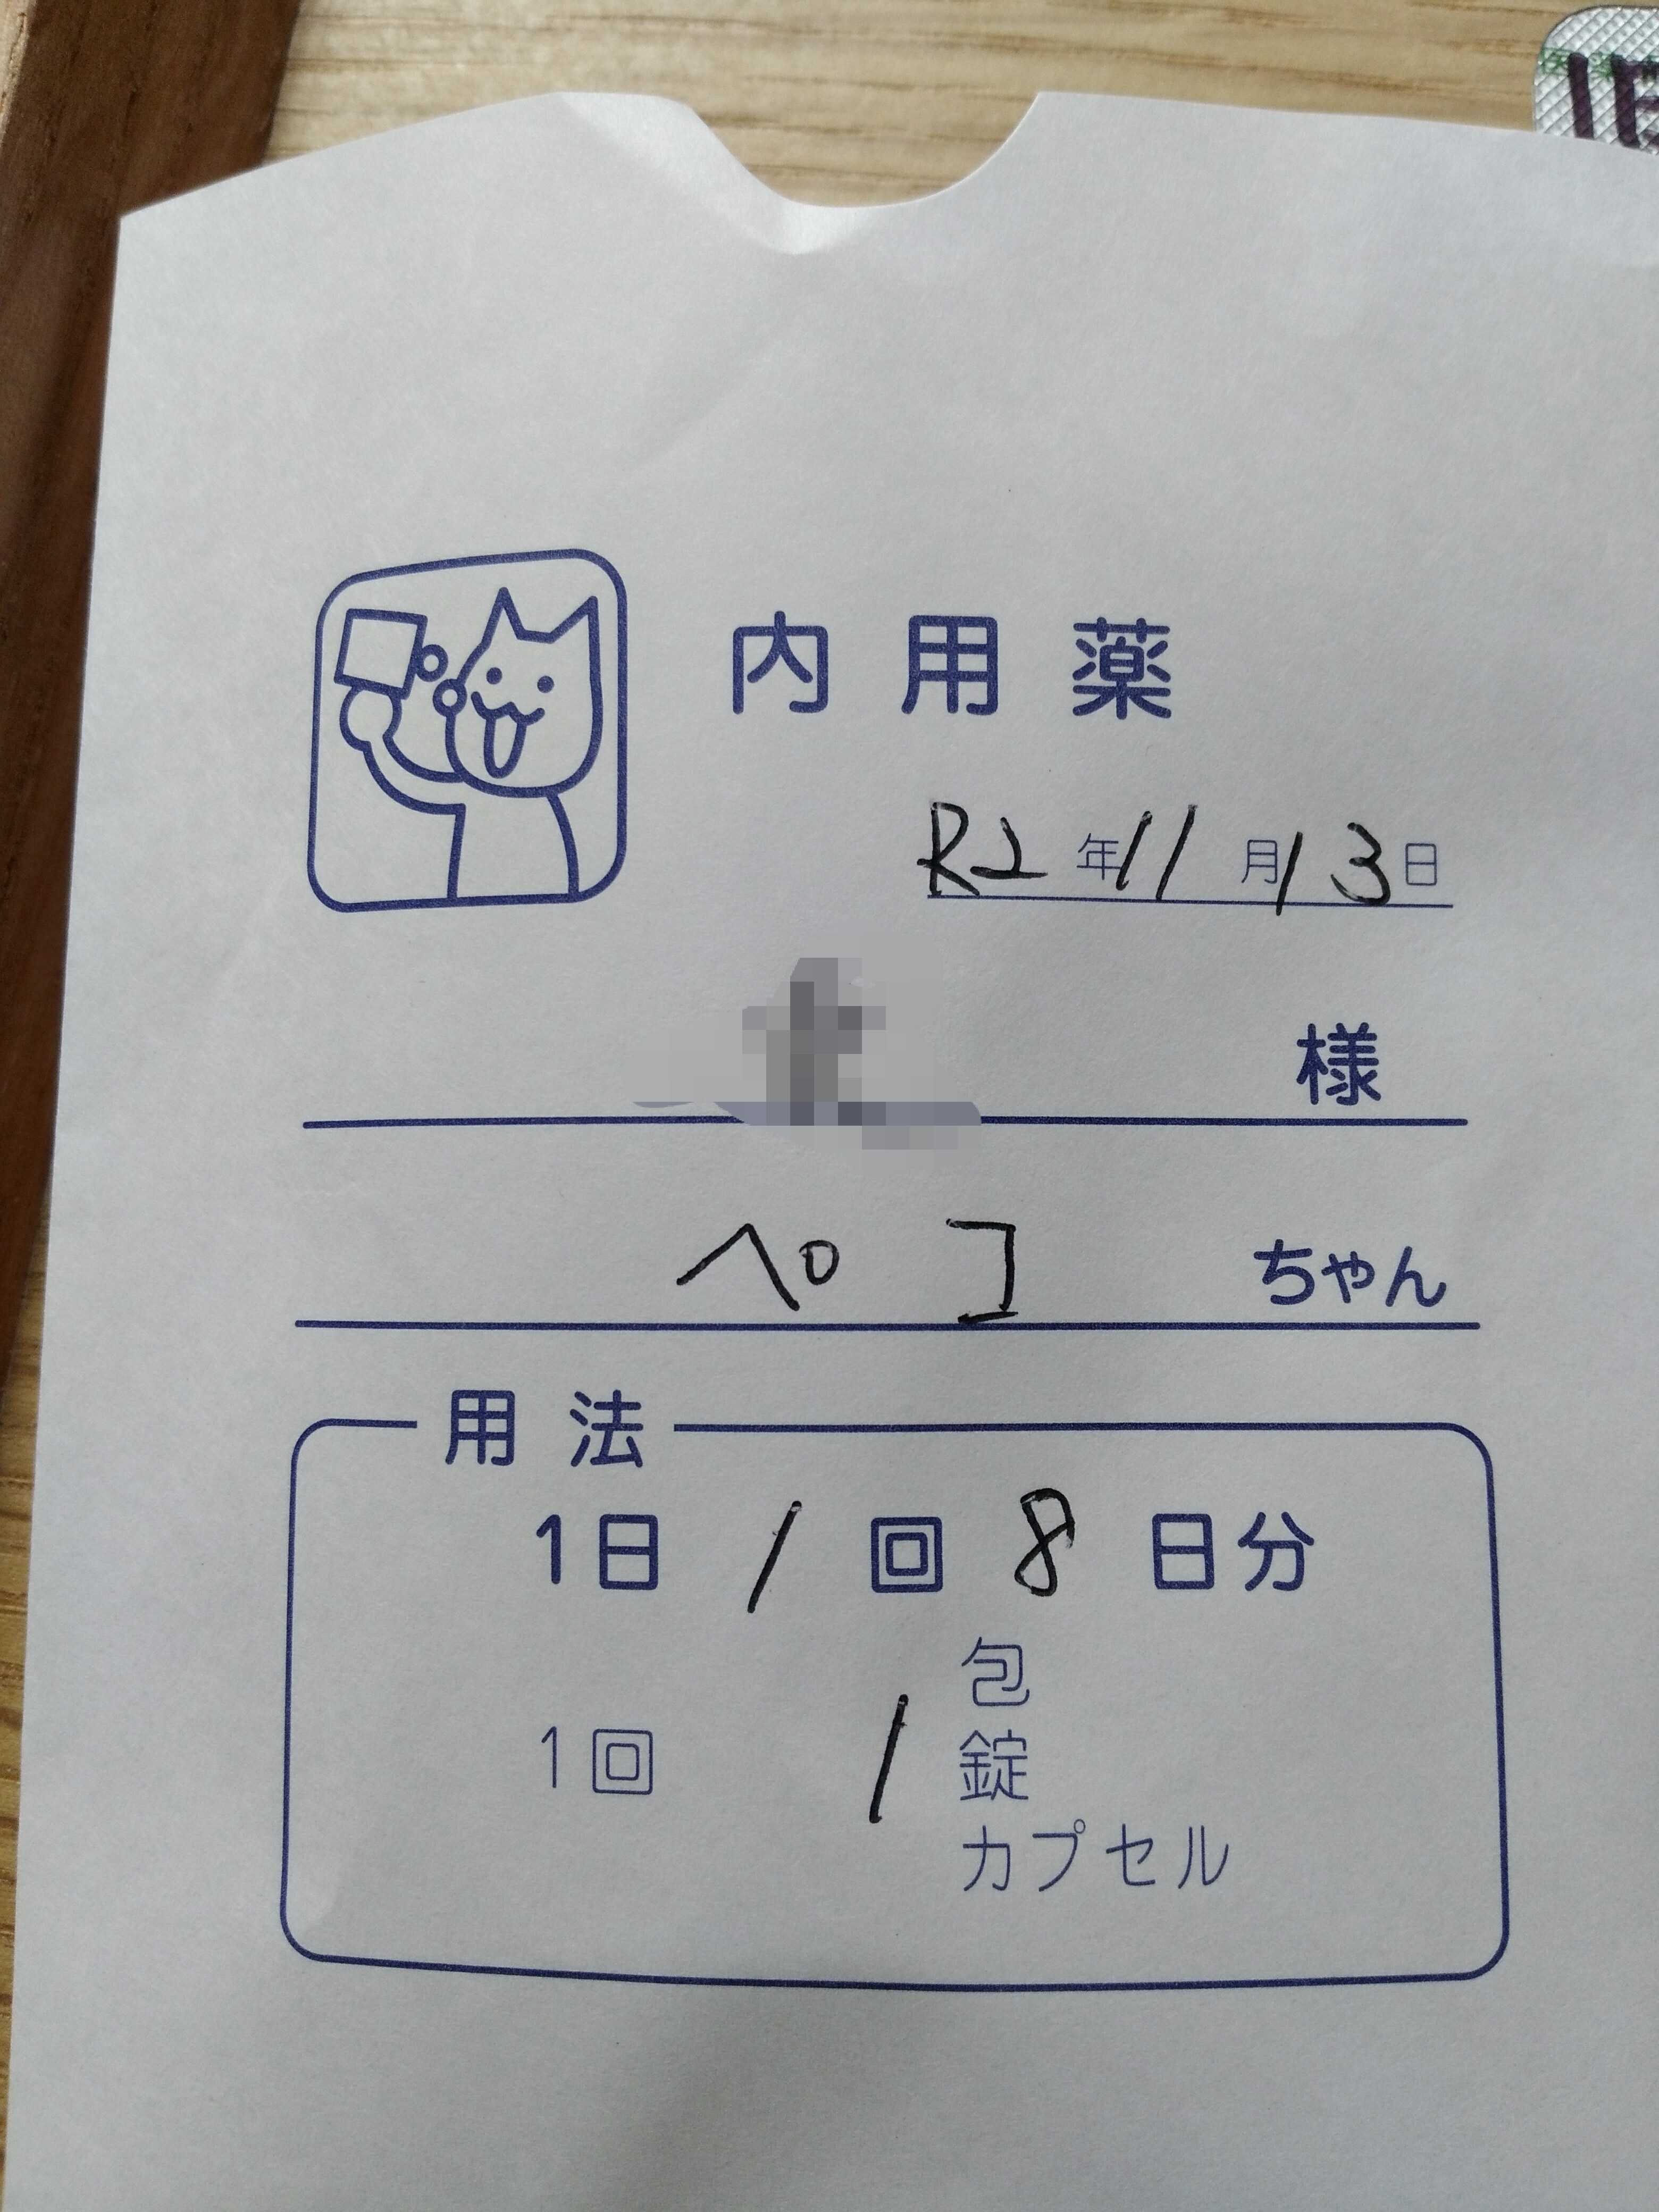 内用薬
R2年11月13日
様
ペコ ちゃん
用法
1日 1 回 8 日分
包
1回 1 錠
カプセル